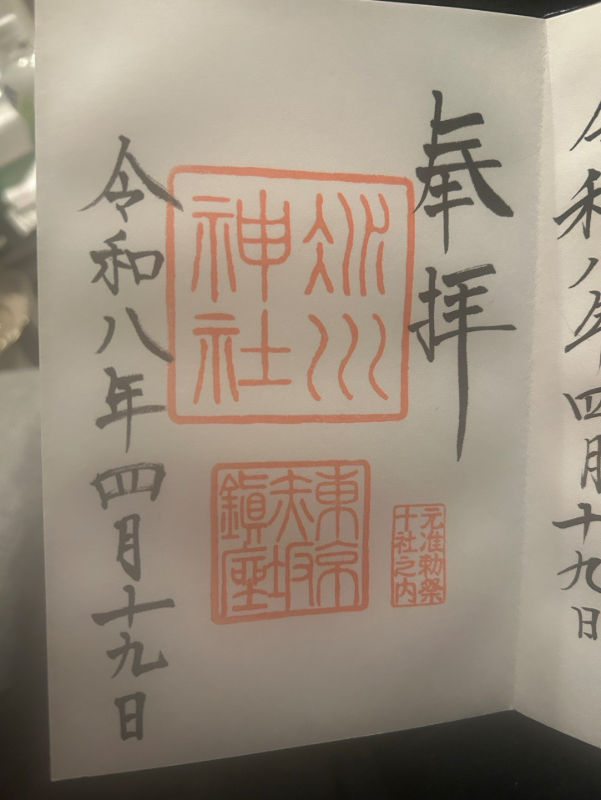 奉拝
氷川
神社
東京
赤坂
鎭座
元准勅祭
十社之内
令和八年四月十九日
令和八年四月十九日